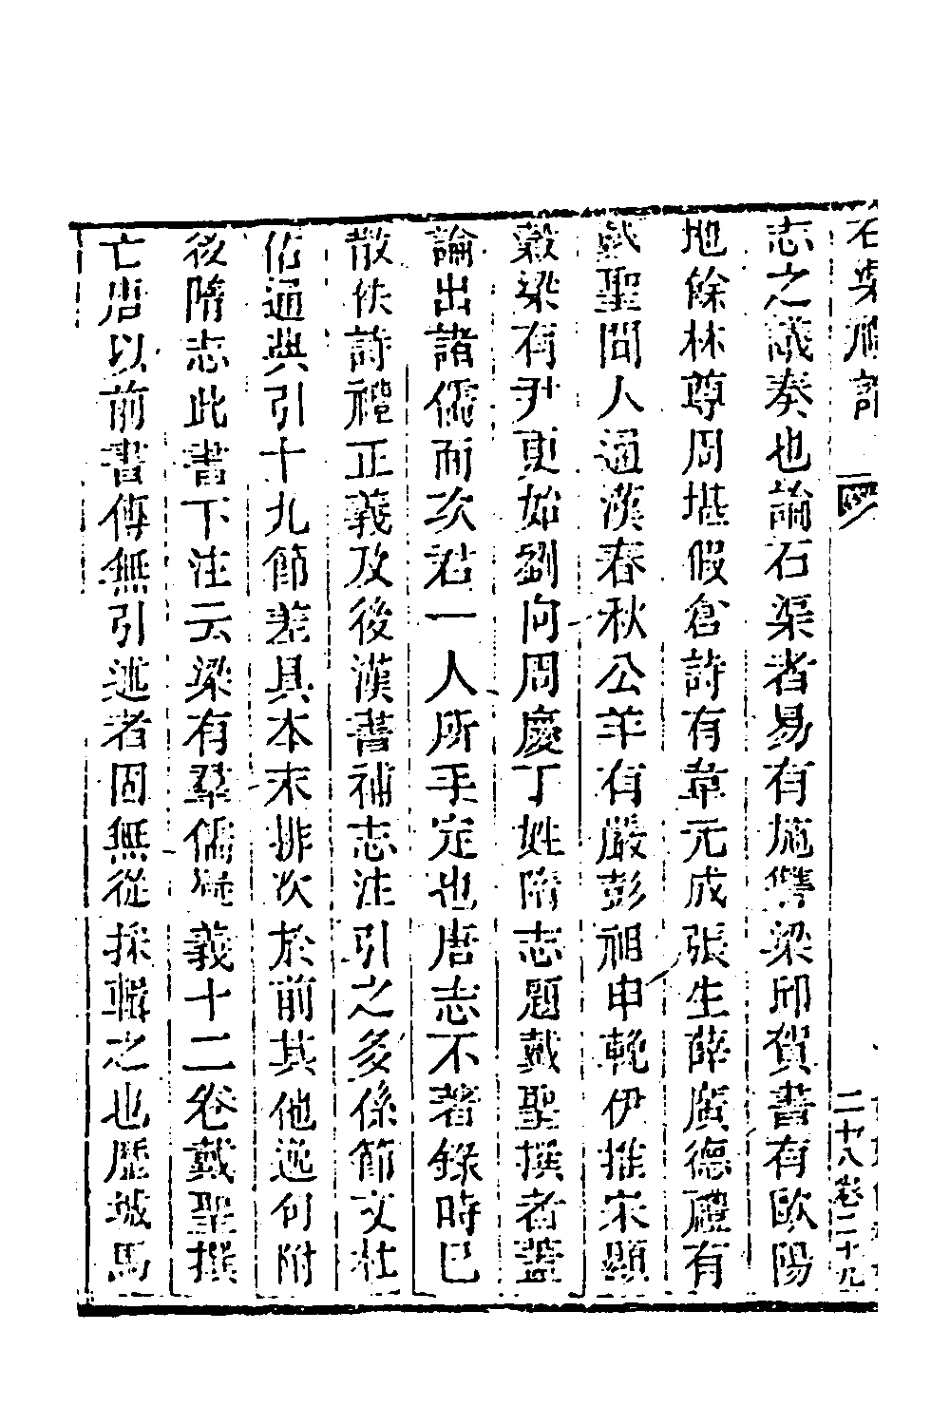 石渠禮論
二十八卷二十九
志之議奏也論石渠者易有施讐梁邱賀書有歐陽
地餘林尊周堪假倉詩有韋元成張生薛廣德禮有
戴聖聞人通漢春秋公羊有嚴彭祖申輓伊推宋顯
穀梁有尹更始劉向周慶丁姓隋志題戴聖撰者蓋
論出諸儒而次君一人所手定也唐志不著錄時已
散佚詩禮正義及後漢書補志注引之多係節文杜
佑通典引十九節差具本末排次於前其他逸句附
後隋志此書下注云梁有羣儒疑義十二卷戴聖撰
亡唐以前書傳無引述者固無從採輯之也歷城馬